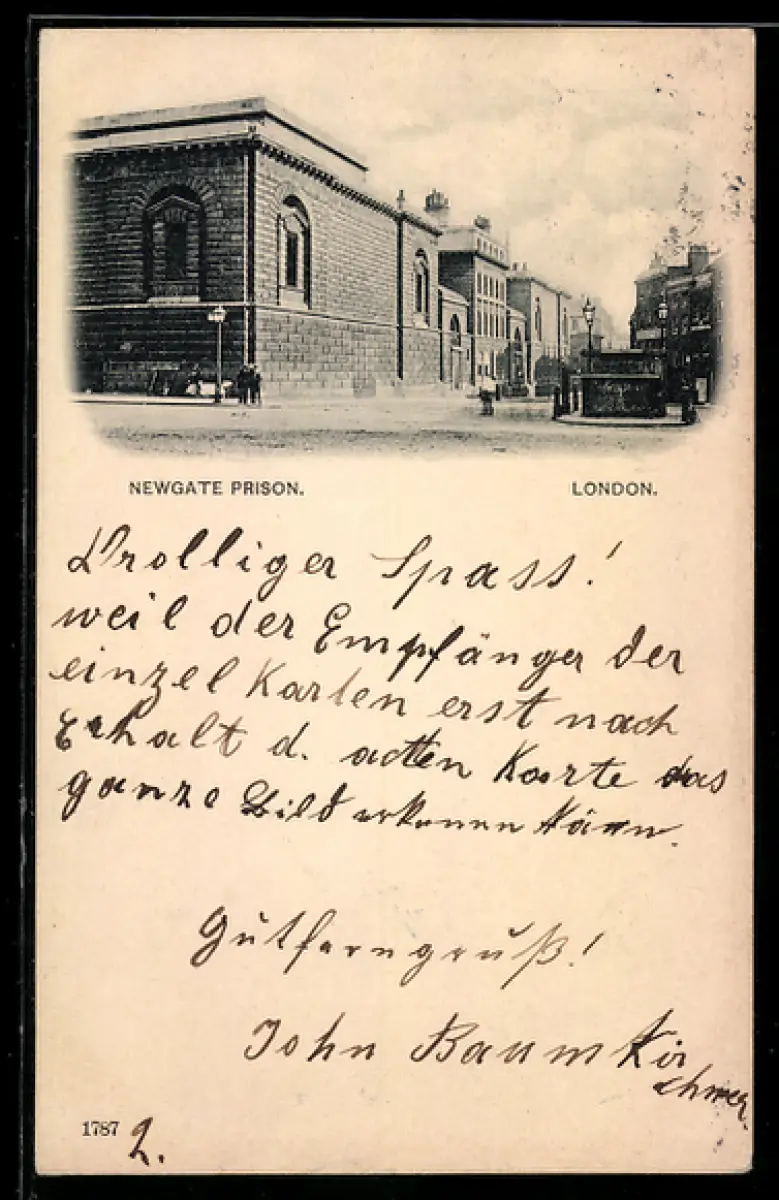 NEWGATE PRISON. LONDON.
Drolliger Spass!
weil der Empfänger der
einzel Karten erst nach
Erhalt d. achten Karte das
ganze Bild erkennen kann.
Gutferngruß!
John Baumkir
chner.
1787 2.